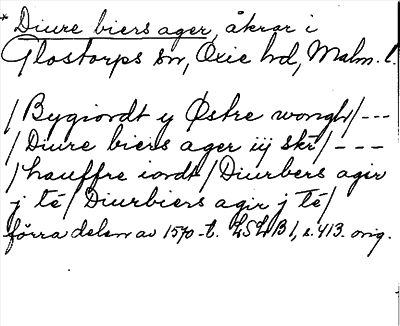 * Diure biers ager, åkrar i
Glostorps sn, Oxie hd, Malm. l.
/Bygiordt y Østre wongh/---
/Diure biers ager iij skr/---
/hauffre iordt/Diurbers agir
j té/Diurbiers agir j té/
förra delen av 1570-t. LSLB 1, s. 413. orig.